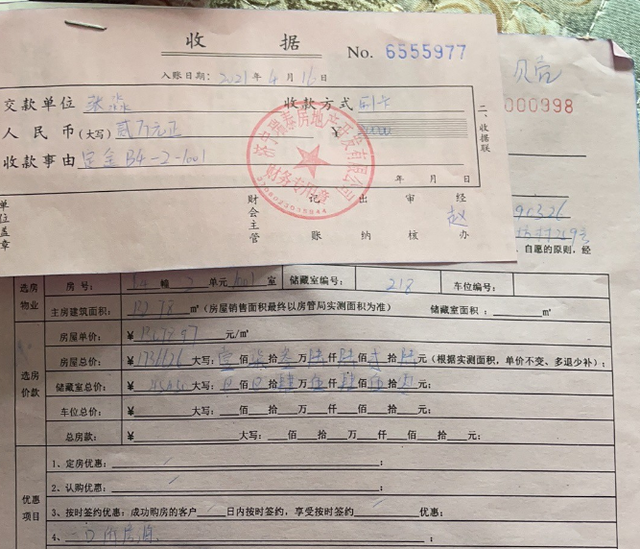 收 据
No. 6555977
入账日期：2021年4月16日
交款单位 张 收款方式 刷卡
人民币(大写) 贰万元正 ¥
收款事由 定金 B4-2-1601
年 月 日
二、收据联
单位盖章
财会主管 记账 出纳 审核 经办 赵
财务专用章
000998
90326
自愿的原则，经
选房物业
房 号： 幢 2 单元 1601 室 储藏室编号： 218 车位编号：
主房建筑面积： ㎡（房屋销售面积最终以房管局实测面积为准） 储藏室面积： ㎡
选房价款
房屋单价： ¥ 元/㎡
房屋总价： ¥ 1736626 大写：壹佰柒拾叁万陆仟陆佰 拾陆元（根据实测面积，单价不变、多退少补）；
储藏室总价： ¥ 大写： 佰 拾 万 仟 佰 拾 元；
车位总价： ¥ 大写： 佰 拾 万 仟 佰 拾 元；
总房款： ¥ 大写： 佰 拾 万 仟 佰 拾 元；
优惠项目
1、定房优惠： ；
2、认购优惠： ；
3、按时签约优惠：成功购房的客户 日内按时签约，享受按时签约 优惠；
4、 一口价房源 ；